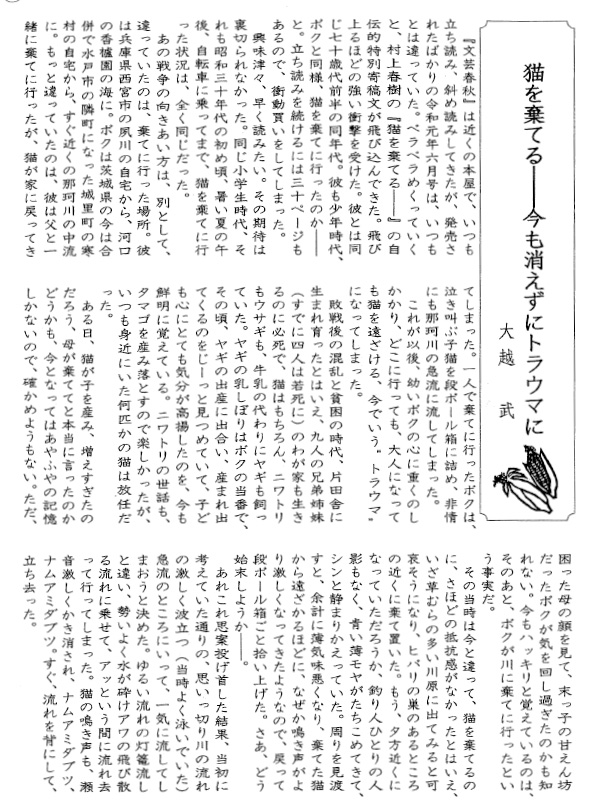 猫を棄てる――今も消えずにトラウマに
大越　武
『文芸春秋』は近くの本屋で、いつも
立ち読み、斜め読みしてきたが、発売さ
れたばかりの令和元年六月号は、いつも
とは違っていた。ペラペラめくっていく
と、村上春樹の『猫を棄てる――』の自
伝的特別寄稿文が飛び込んできた。飛び
上るほどの強い衝撃を受けた。彼とは同
じ七十歳代前半の同年代。彼も少年時代、
ボクと同様、猫を棄てに行ったのか――
と。立ち読みを続けるには三十ページも
あるので、衝動買いをしてしまった。
興味津々、早く読みたい。その期待は
裏切られなかった。同じ小学生時代、そ
れも昭和三十年代の初め頃、暑い夏の午
後、自転車に乗ってまで、猫を棄てに行
った状況は、全く同じだった。
あの戦争の向きあい方は、別として、
違っていたのは、棄てに行った場所。彼
は兵庫県西宮市の夙川の自宅から、河口
の香櫨園の海に。ボクは茨城県の今は合
併で水戸市の隣町になった城里町の寒
村の自宅から、すぐ近くの那珂川の中流
に。もっと違っていたのは、彼は父と一
緒に棄てに行ったが、猫が家に戻ってき
てしまった。一人で棄てに行ったボクは、
泣き叫ぶ子猫を段ボール箱に詰め、非情
にも那珂川の急流に流してしまった。
これが以後、幼いボクの心に重くのし
かかり、どこに行っても、大人になって
も猫を遠ざける、今でいう〝トラウマ〟
になってしまった。
敗戦後の混乱と貧困の時代、片田舎に
生まれ育ったとはいえ、九人の兄弟姉妹
（すでに四人は若死に）のわが家も生き
るのに必死で、猫はもちろん、ニワトリ
もウサギも、牛乳の代わりにヤギも飼っ
ていた。ヤギの乳しぼりはボクの当番で、
その頃、ヤギの出産に出合い、産まれ出
てくるのをじーっと見つめていて、子ど
も心にとても気分が高揚したのを、今も
鮮明に覚えている。ニワトリの世話も、
タマゴを産み落とすので楽しかったが、
いつも身近にいた何匹かの猫は放任だ
った。
ある日、猫が子を産み、増えすぎたの
だろう、母が棄ててと本当に言ったのか
どうかも、今となってはあやふやの記憶
しかないので、確かめようもない。ただ、
困った母の顔を見て、末っ子の甘えん坊
だったボクが気を回し過ぎたのかも知
れない。今もハッキリと覚えているのは、
そのあと、ボクが川に棄てに行ったとい
う事実だ。
その当時は今と違って、猫を棄てるの
に、さほどの抵抗感がなかったとはいえ、
いざ草むらの多い川原に出てみると可
哀そうになり、ヒバリの巣のあるところ
の近くに棄て置いた。もう、夕方近くに
なっていただろうか、釣り人ひとりの人
影もなく、青い薄モヤがたちこめてきて、
シンと静まりかえっていた。周りを見渡
すと、余計に薄気味悪くなり、棄てた猫
から遠ざかるほどに、なぜか鳴き声がよ
り激しくなってきたようなので、戻って
段ボール箱ごと拾い上げた。さあ、どう
始末しようか――。
あれこれ思案投げ首した結果、当初に
考えていた通りの、思いっ切り川の流れ
の激しく波立つ（当時よく泳いでいた）
急流のところにいって、一気に流してし
まおうと決めた。ゆるい流れの灯籠流し
と違い、勢いよく水が砕けアワの飛び散
る流れに乗せて、アッという間に流れ去
って行ってしまった。猫の鳴き声も、瀬
音激しくかき消され、ナムアミダブツ、
ナムアミダブツ。すぐ、流れを背にして、
立ち去った。